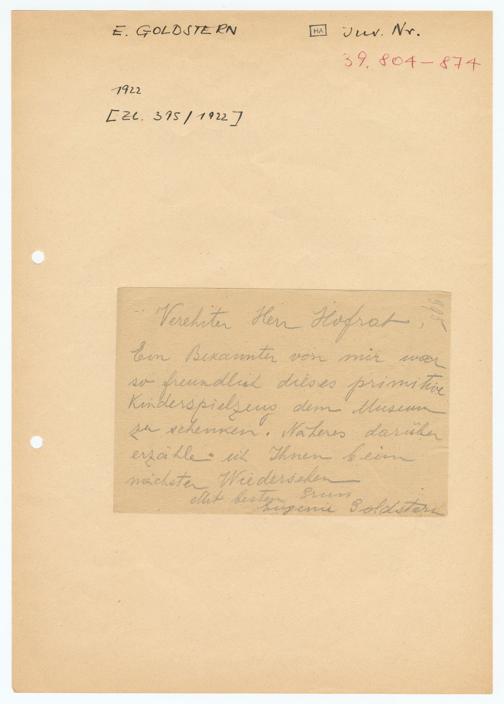 E. GOLDSTERN
HA Inv. Nr.
39.804–874
1922
[Zl. 395/1922]
Verehrter Herr Hofrat,
Ein Bekannter von mir war
so freundlich dieses primitive
Kinderspielzeug dem Museum
zu schenken. Näheres darüber
erzähle ich Ihnen beim
nächsten Wiedersehen
Mit besten Gruss
Eugenie Goldstern